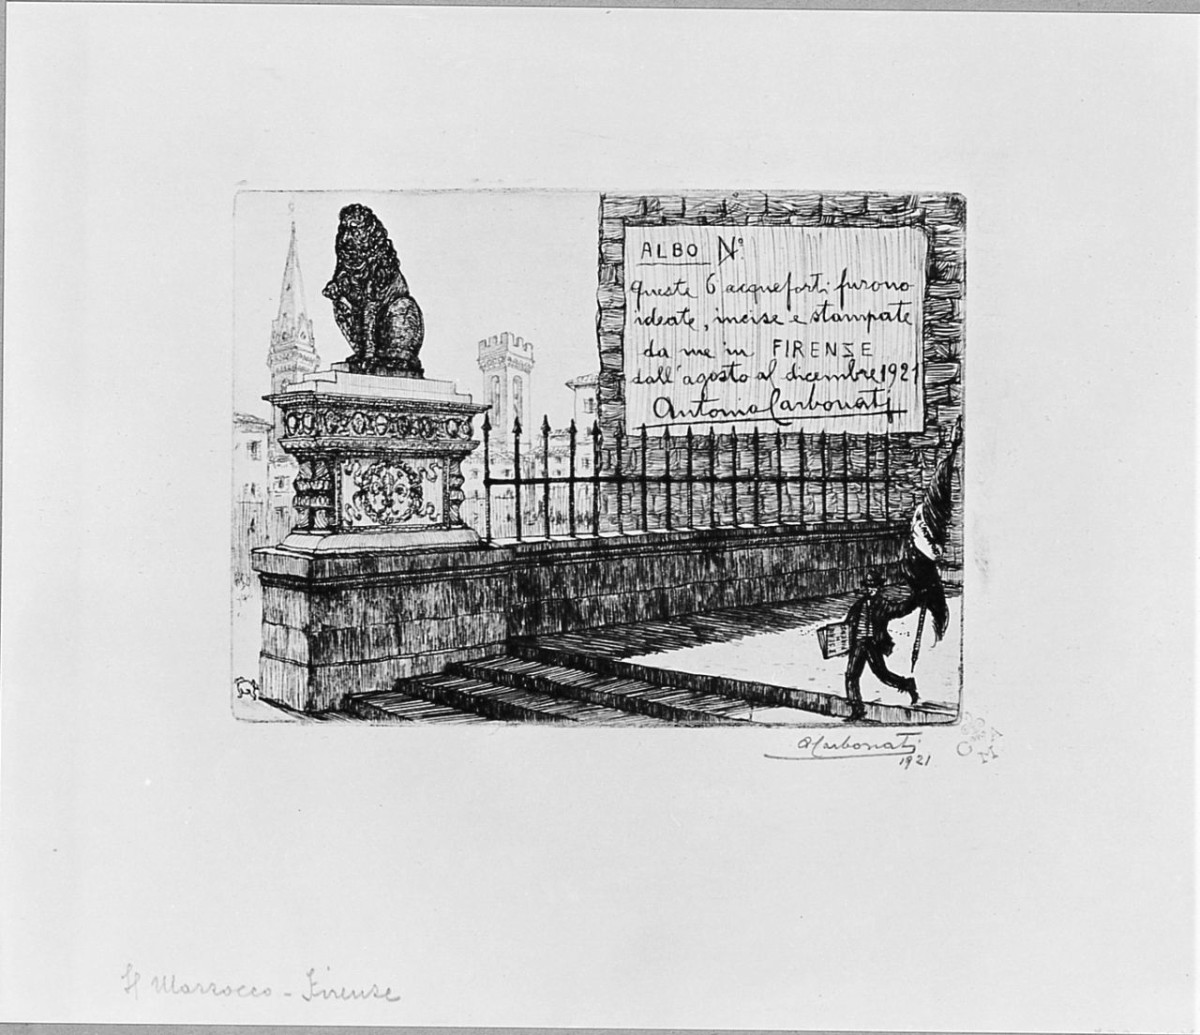 ALBO Nº
queste 6 acqueforti furono
ideate, incise e stampate
da me in FIRENZE
dall'agosto al dicembre 1921
Antonio Carbonati
ACarbonati
1921
C M A
Il Marzocco - Firenze